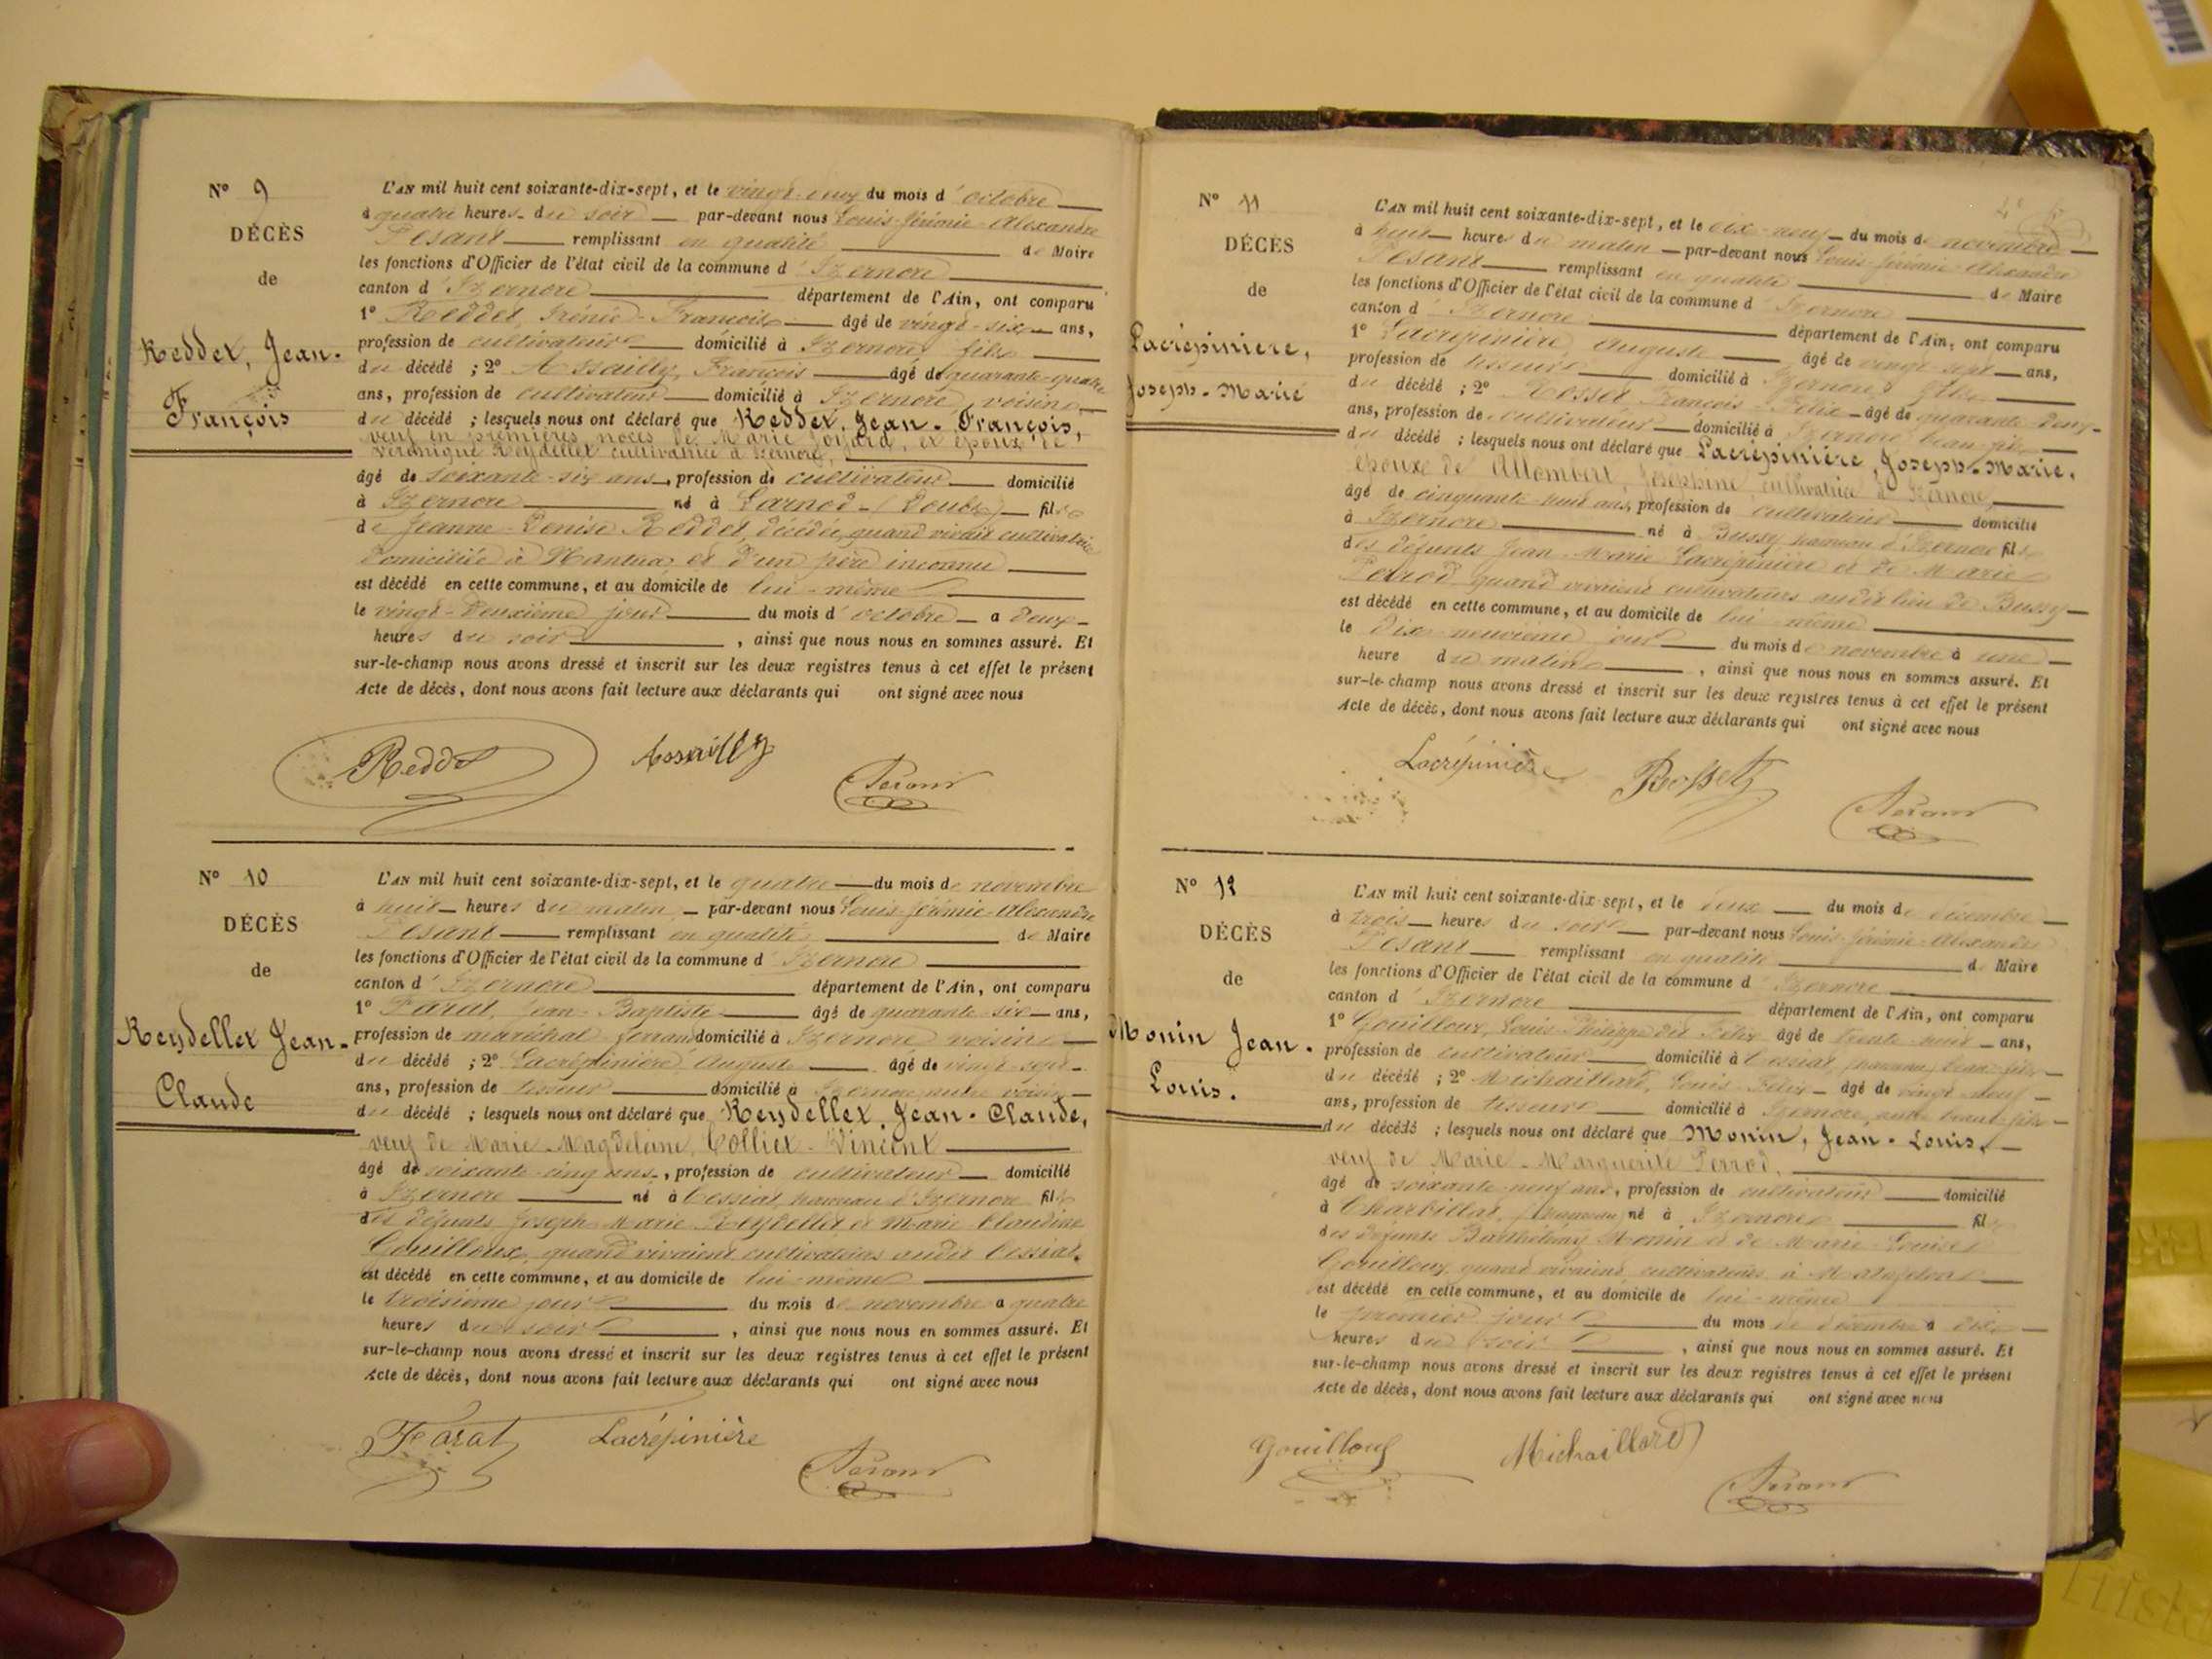 N° 9
DÉCÈS
de
Reddet, Jean-
François
L'AN mil huit cent soixante-dix-sept, et le vingt-deux du mois d'octobre
à quatre heures du soir par-devant nous Louis-Jérémie-Alexandre
Pesant remplissant en qualité de Maire
les fonctions d'Officier de l'état civil de la commune d'Izernore
canton d'Izernore département de l'Ain, ont comparu
1° Reddet, Irénée-François âgé de vingt-six ans,
profession de cultivateur domicilié à Izernore fils
du décédé ; 2° Assailly, François âgé de quarante-quatre
ans, profession de cultivateur domicilié à Izernore, voisin
du décédé ; lesquels nous ont déclaré que Reddet, Jean-François,
veuf en premières noces de Marie Joyard, et époux de
Véronique Reydellet cultivatrice à Izernore,
âgé de soixante-six ans, profession de cultivateur domicilié
à Izernore né à Larnod (Doubs) fils
de Jeanne-Denise Reddet, décédée, quand vivait cultivatrice
domiciliée à Nantua et d'un père inconnu
est décédé en cette commune, et au domicile de lui-même
le vingt-deuxième jour du mois d'octobre a deux
heures du soir, ainsi que nous nous en sommes assuré. Et
sur-le-champ nous avons dressé et inscrit sur les deux registres tenus à cet effet le présent
Acte de décès, dont nous avons fait lecture aux déclarants qui ont signé avec nous
Reddet Assailly Pesant
N° 10
DÉCÈS
de
Reydellet Jean-
Claude
L'AN mil huit cent soixante-dix-sept, et le quatre du mois de novembre
à huit heures du matin par-devant nous Louis-Jérémie-Alexandre
Pesant remplissant en qualité de Maire
les fonctions d'Officier de l'état civil de la commune d'Izernore
canton d'Izernore département de l'Ain, ont comparu
1° Farat, Jean-Baptiste âgé de quarante-six ans,
profession de maréchal ferrand domicilié à Izernore voisin
du décédé ; 2° Lacrépinière Auguste âgé de vingt-sept
ans, profession de tisseur domicilié à Izernore autre voisin
du décédé ; lesquels nous ont déclaré que Reydellet, Jean-Claude,
veuf de Marie-Magdeleine Colliet-Vincent
âgé de soixante-cinq ans, profession de cultivateur domicilié
à Izernore né à Cessiat, hameau d'Izernore fils
des défunts Joseph-Marie Reydellet et Marie Claudine
Gouilloux, quand vivaient cultivateurs audit Cessiat.
est décédé en cette commune, et au domicile de lui-même
le troisième jour du mois de novembre a quatre
heures du soir, ainsi que nous nous en sommes assuré. Et
sur-le-champ nous avons dressé et inscrit sur les deux registres tenus à cet effet le présent
Acte de décès, dont nous avons fait lecture aux déclarants qui ont signé avec nous
Farat Lacrépinière Pesant
N° 11
DÉCÈS
de
Lacrépinière,
Joseph-Marie
L'AN mil huit cent soixante-dix-sept, et le dix-neuf du mois de novembre
à huit heures du matin par-devant nous Louis-Jérémie-Alexandre
Pesant remplissant en qualité de Maire
les fonctions d'Officier de l'état civil de la commune d'Izernore
canton d'Izernore département de l'Ain, ont comparu
1° Lacrépinière Auguste âgé de vingt-sept ans,
profession de tisseur domicilié à Izernore fils
du décédé ; 2° Rosset François-Félix âgé de quarante-deux
ans, profession de cultivateur domicilié à Izernore beau-fils
du décédé ; lesquels nous ont déclaré que Lacrépinière, Joseph-Marie,
époux de Allombert, Joséphine, cultivatrice à Izernore,
âgé de cinquante-huit ans, profession de cultivateur domicilié
à Izernore né à Bussy hameau d'Izernore fils
des défunts Jean-Marie Lacrépinière et de Marie
Perrod quand vivaient cultivateurs audit lieu de Bussy
est décédé en cette commune, et au domicile de lui-même
le dix-neuvième jour du mois de novembre à une
heure du matin, ainsi que nous nous en sommes assuré. Et
sur-le-champ nous avons dressé et inscrit sur les deux registres tenus à cet effet le présent
Acte de décès, dont nous avons fait lecture aux déclarants qui ont signé avec nous
Lacrépinière Rosset Pesant
N° 12
DÉCÈS
de
Monin Jean-
Louis.
L'AN mil huit cent soixante-dix-sept, et le deux du mois de décembre
à trois heures du soir par-devant nous Louis-Jérémie-Alexandre
Pesant remplissant en qualité de Maire
les fonctions d'Officier de l'état civil de la commune d'Izernore
canton d'Izernore département de l'Ain, ont comparu
1° Gouilloux, Louis-Philippe dit Félix âgé de trente-huit ans,
profession de cultivateur domicilié à Cessiat, hameau, beau-fils
du décédé ; 2° Michaillard, Louis-Félix âgé de vingt-neuf
ans, profession de tisseur domicilié à Izernore, autre beau-fils
du décédé ; lesquels nous ont déclaré que Monin, Jean-Louis,
veuf de Marie-Marguerite Perrod,
âgé de soixante-neuf ans, profession de cultivateur domicilié
à Charbillat, hameau né à Izernore fils
des défunts Barthélémy Monin et de Marie-Louise
Gouilloux, quand vivaient cultivateurs à Matafelon
est décédé en cette commune, et au domicile de lui-même
le premier jour du mois de décembre à dix
heures du soir, ainsi que nous nous en sommes assuré. Et
sur-le-champ nous avons dressé et inscrit sur les deux registres tenus à cet effet le présent
Acte de décès, dont nous avons fait lecture aux déclarants qui ont signé avec nous
Gouilloux Michaillard Pesant